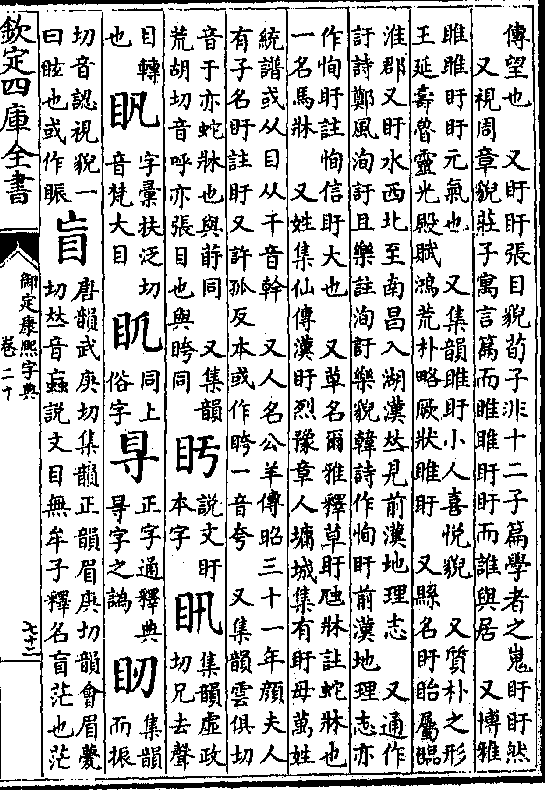 傳望也　又盱盱張目貌荀子非十二子篇學者之嵬盱盱然
又視周章貌莊子寓言篇而睢睢盱盱而誰與居　又博雅
睢睢盱盱元氣也　又集韻睢盱小人喜悅貌　又質朴之形
王延壽魯靈光殿賦鴻荒朴略厥狀睢盱　又縣名盱眙屬臨
淮郡又盱水西北至南昌入湖漢𠀤見前漢地理志　又通作
訏詩鄭風洵訏且樂註洵訏樂貌韓詩作恂盱前漢地理志亦
作恂盱註恂信盱大也　又草名爾雅釋草盱虺牀註蛇牀也
一名馬牀　又姓集仙傳漢盱烈豫章人墉城集有盱母萬姓
統譜或从目从千音幹　又人名公羊傳昭三十一年顏夫人
有子名盱註盱又許孤反本或作一音夸　又集韻雲俱切
音于亦蛇牀也與同　又集韻
荒胡切音呼亦張目也與同
說文盱
本字
集韻虛政
切兄去聲
目轉
也
字彙扶泛切
音梵大目
同上
俗字
正字通釋典
㝵字之譌
集韻
而振
切音認視貌一
曰眩也或作
盲
唐韻武庚切集韻正韻眉庚切韻會眉甍
切𠀤音蝱說文目無牟子釋名盲茫也茫
欽定四庫全書
御定康熙字典
卷二十
七十二